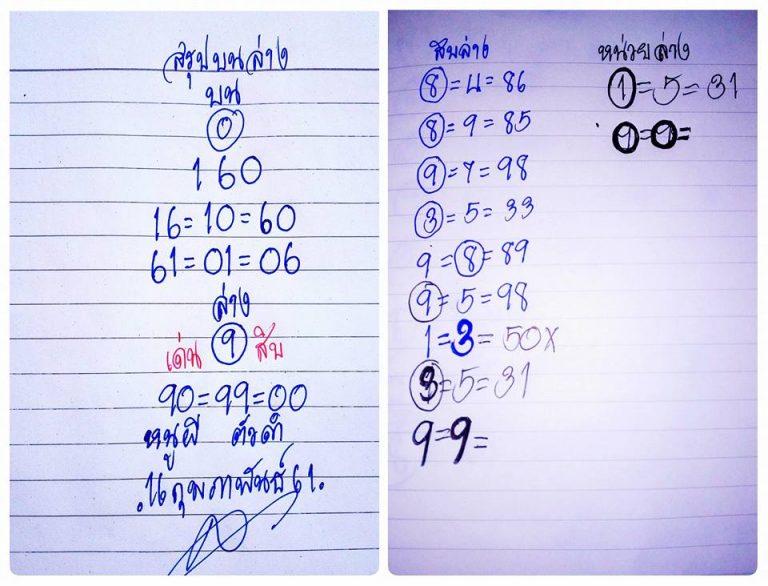 สรุปบนล่าง
บน
0
160
16=10=60
61=01=06
ล่าง
เด่น 9 สิบ
90=99=00
หนูผี ตัวดำ
.16 กุมภาพันธ์ 61.
สิบล่าง
8=4=86
8=9=85
9=7=98
3=5=33
9=8=89
9=5=98
1=3=50X
3=5=31
9=9=
หน่วยล่าง
1=5=31
9=9=